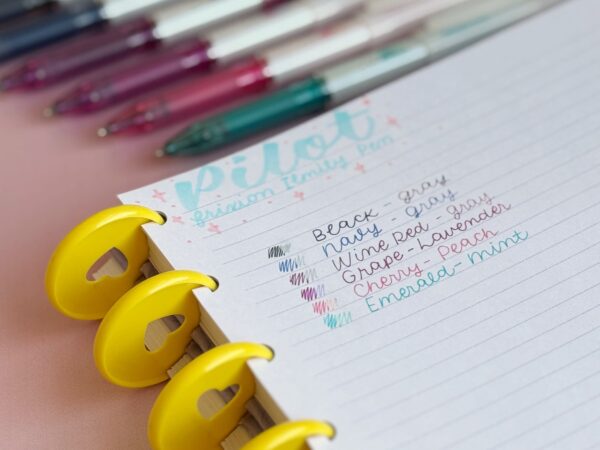 Pilot
frixion Temily Pen
Black - gray
Navy - gray
Wine Red - gray
Grape - Lavender
Cherry - Peach
Emerald - mint